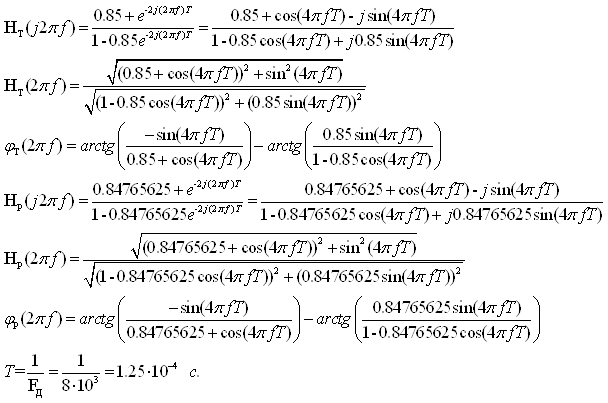 H_T(j2πf) = (0.85 + e^{-2j(2πf)T}) / (1 - 0.85e^{-2j(2πf)T}) = (0.85 + cos(4πfT) - j sin(4πfT)) / (1 - 0.85 cos(4πfT) + j0.85 sin(4πfT))
H_T(2πf) = √((0.85 + cos(4πfT))² + sin²(4πfT)) / √((1 - 0.85 cos(4πfT))² + (0.85 sin(4πfT))²)
φ_T(2πf) = arctg(-sin(4πfT) / (0.85 + cos(4πfT))) - arctg(0.85 sin(4πfT) / (1 - 0.85 cos(4πfT)))
H_P(j2πf) = (0.84765625 + e^{-2j(2πf)T}) / (1 - 0.84765625e^{-2j(2πf)T}) = (0.84765625 + cos(4πfT) - j sin(4πfT)) / (1 - 0.84765625 cos(4πfT) + j0.84765625 sin(4πfT))
H_P(2πf) = √((0.84765625 + cos(4πfT))² + sin²(4πfT)) / √((1 - 0.84765625 cos(4πfT))² + (0.84765625 sin(4πfT))²)
φ_P(2πf) = arctg(-sin(4πfT) / (0.84765625 + cos(4πfT))) - arctg(0.84765625 sin(4πfT) / (1 - 0.84765625 cos(4πfT)))
T = 1 / F_Д = 1 / (8·10³) = 1.25·10⁻⁴ с.